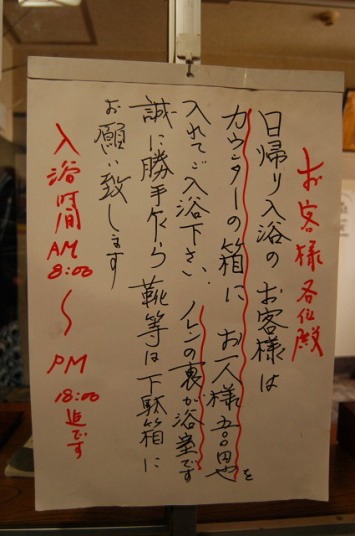 お客様各位殿
日帰り入浴のお客様は
カウンターの箱に お一人様五〇〇円也を
入れてご入浴下さい.ノレンの裏が浴室です
誠に勝手乍ら靴等は下駄箱に
お願い致します
入浴時間 AM 8:00 〜 PM 18:00 迄です